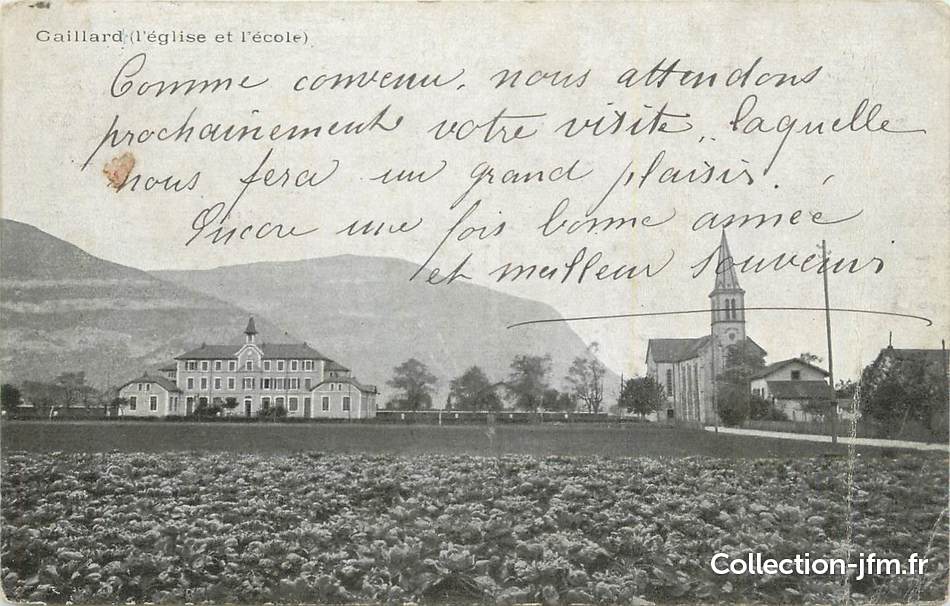 Gaillard (l'église et l'école)
Comme convenu, nous attendons
prochainement votre visite, laquelle
nous fera un grand plaisir.
Encore une fois bonne année
et meilleur souvenir
Collection-jfm.fr